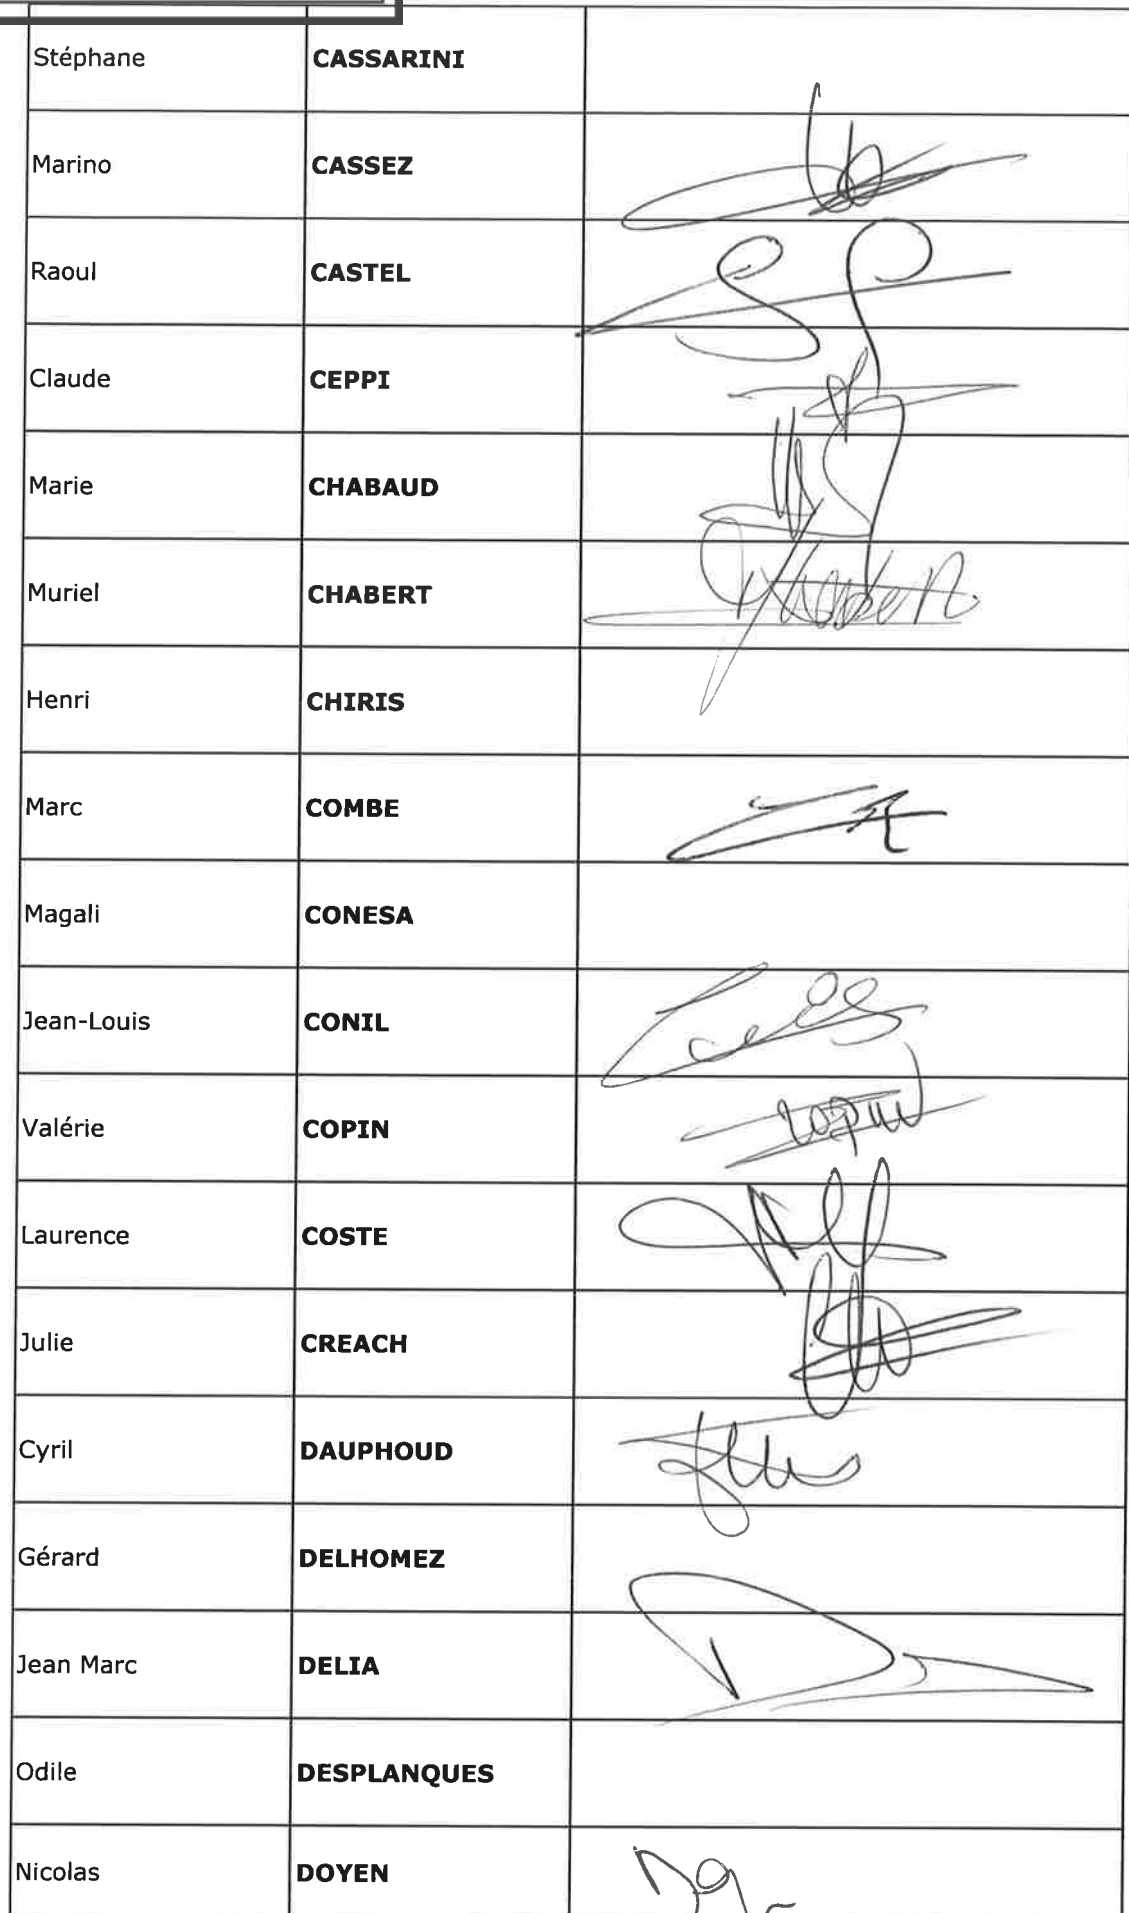 Stéphane CASSARINI
Marino CASSEZ
Raoul CASTEL
Claude CEPPI
Marie CHABAUD
Muriel CHABERT
Henri CHIRIS
Marc COMBE
Magali CONESA
Jean-Louis CONIL
Valérie COPIN
Laurence COSTE
Julie CREACH
Cyril DAUPHOUD
Gérard DELHOMEZ
Jean Marc DELIA
Odile DESPLANQUES
Nicolas DOYEN